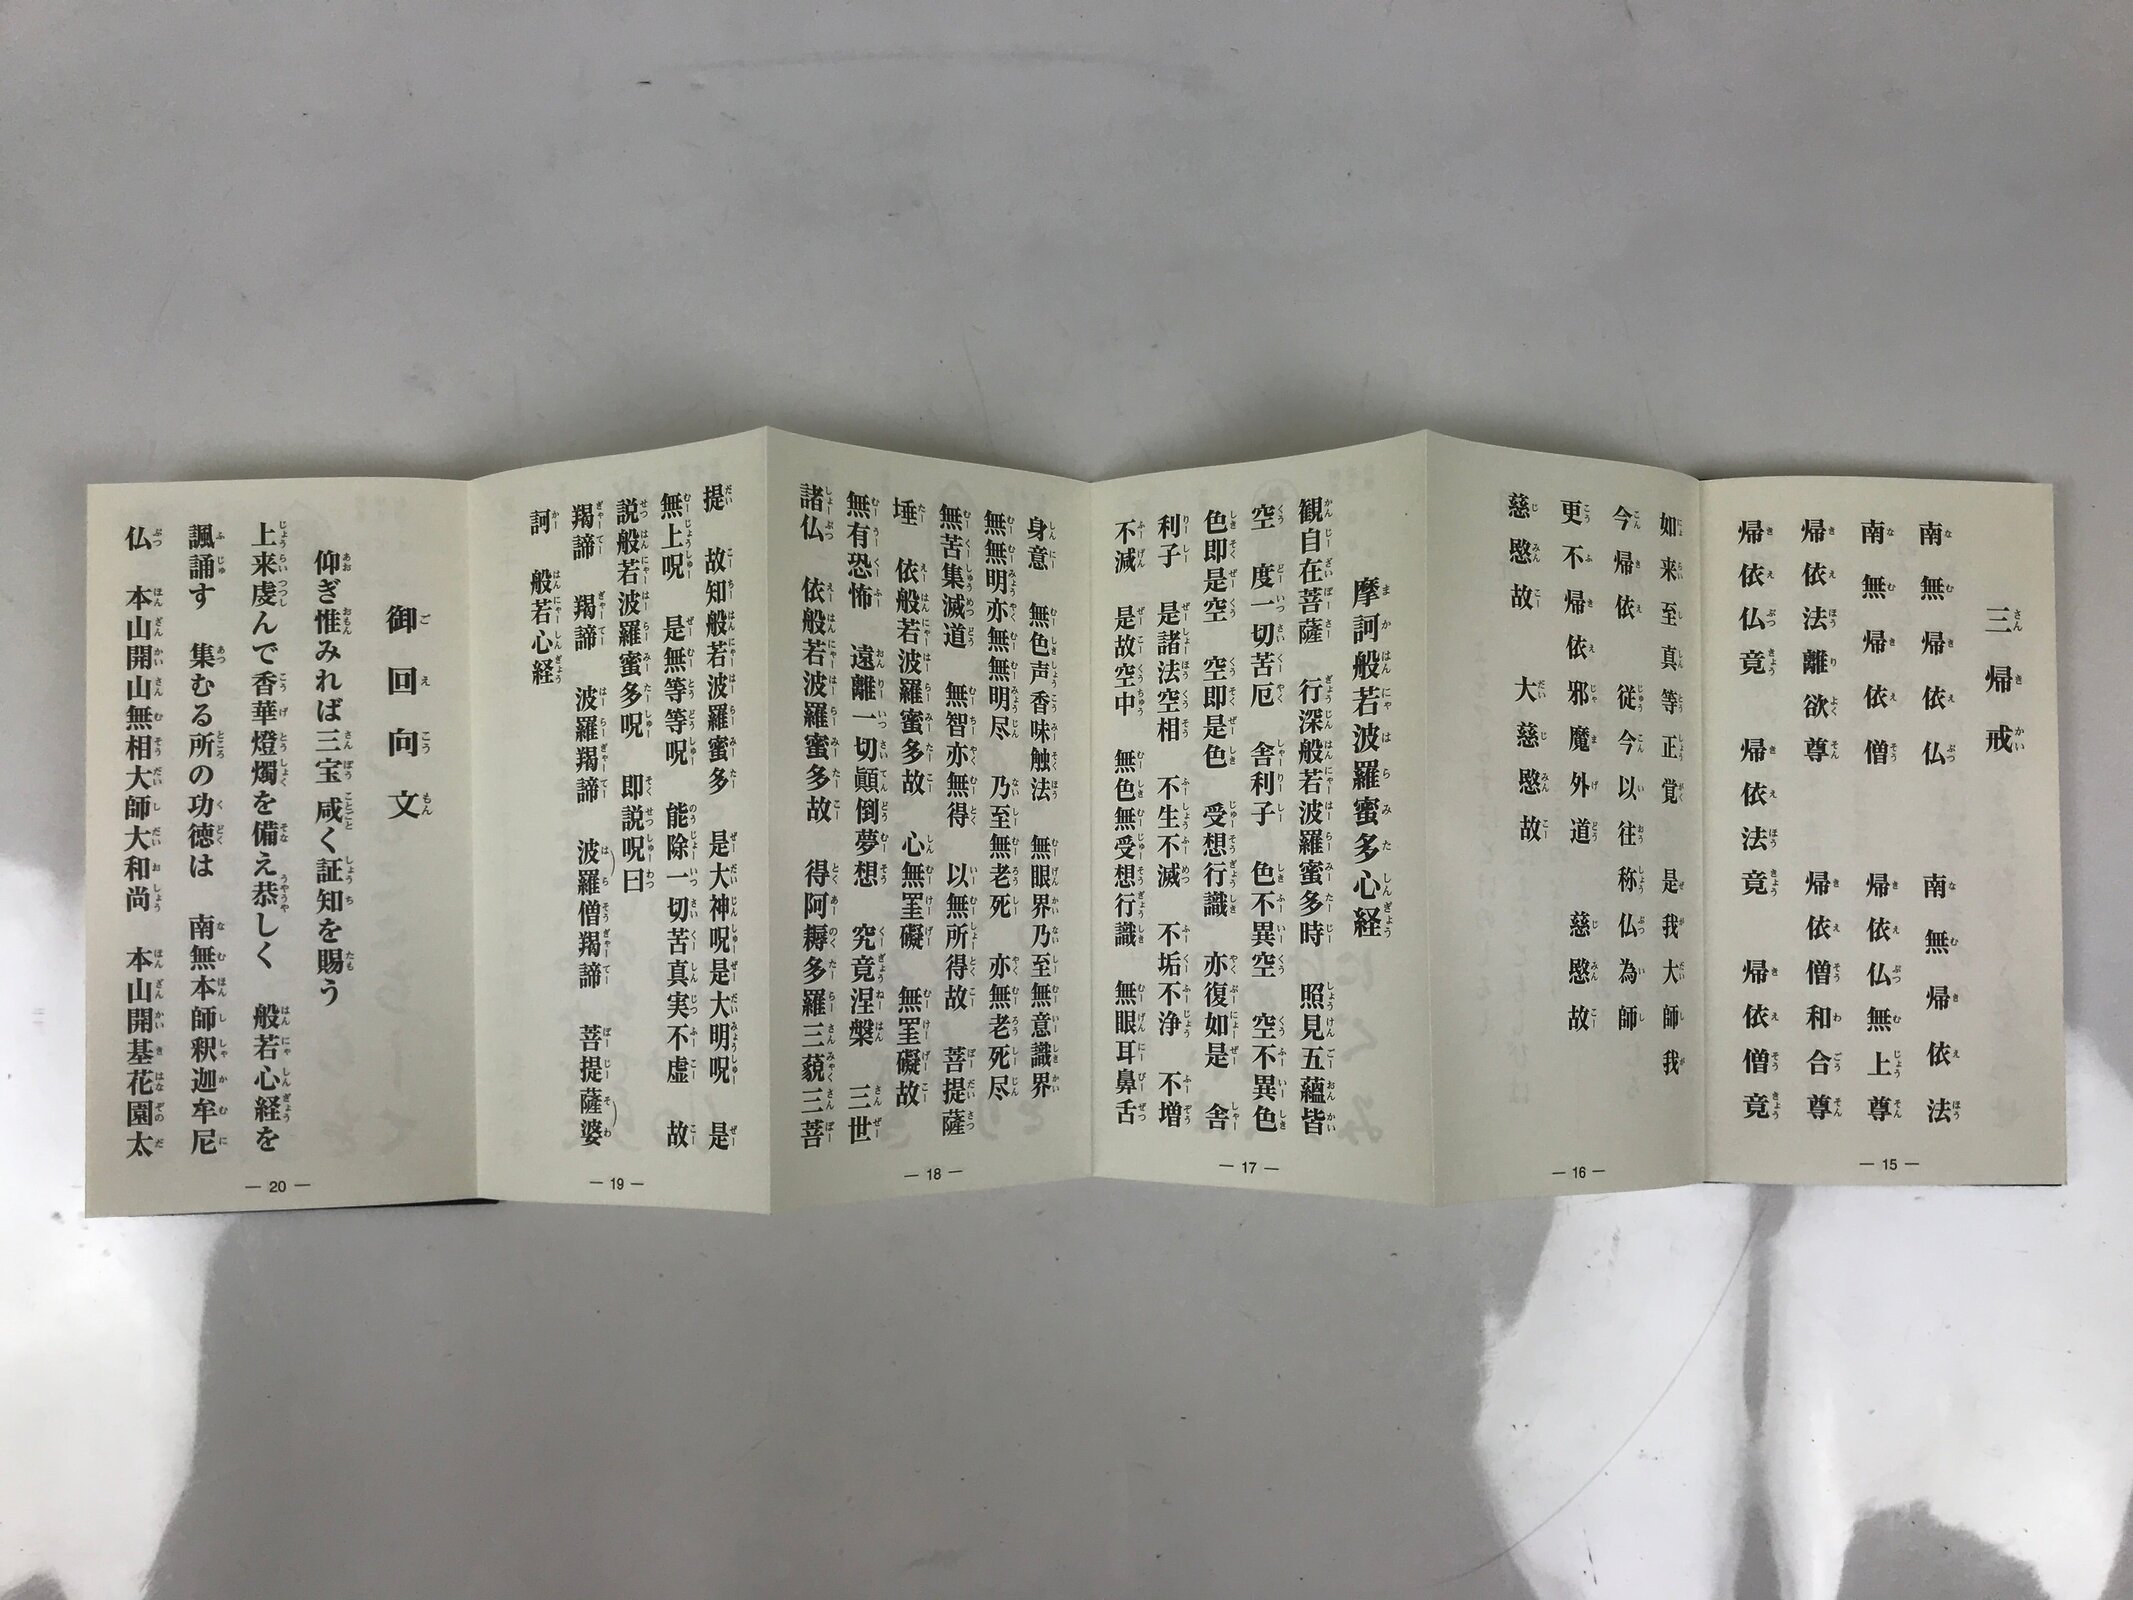 三帰戒
南無帰依仏　南無帰依法
南無帰依僧　帰依仏無上尊
帰依法離欲尊　帰依僧和合尊
帰依仏竟　帰依法竟　帰依僧竟
― 15 ―
如来至真等正覚　是我大師我
今帰依　従今以往　称仏為師
更不帰依邪魔外道　慈愍故
慈愍故　大慈愍故
― 16 ―
摩訶般若波羅蜜多心経
観自在菩薩　行深般若波羅蜜多時　照見五蘊皆
空　度一切苦厄　舎利子　色不異空　空不異色
色即是空　空即是色　受想行識　亦復如是　舎
利子　是諸法空相　不生不滅　不垢不浄　不増
不減　是故空中　無色無受想行識　無眼耳鼻舌
― 17 ―
身意　無色声香味触法　無眼界乃至無意識界
無無明亦無無明尽　乃至無老死　亦無老死尽
無苦集滅道　無智亦無得　以無所得故　菩提薩
埵　依般若波羅蜜多故　心無罣礙　無罣礙故
無有恐怖　遠離一切顛倒夢想　究竟涅槃　三世
諸仏　依般若波羅蜜多故　得阿耨多羅三藐三菩
― 18 ―
提　故知般若波羅蜜多　是大神呪是大明呪　是
無上呪　是無等等呪　能除一切苦真実不虚　故
説般若波羅蜜多呪　即説呪曰
羯諦　羯諦　波羅羯諦　波羅僧羯諦　菩提薩婆
訶　般若心経
― 19 ―
御回向文
仰ぎ惟みれば三宝咸く証知を賜う
上来虔んで香華燈燭を備え恭しく　般若心経を
諷誦す　集むる所の功徳は　南無本師釈迦牟尼
仏　本山開山無相大師大和尚　本山開基花園太
― 20 ―